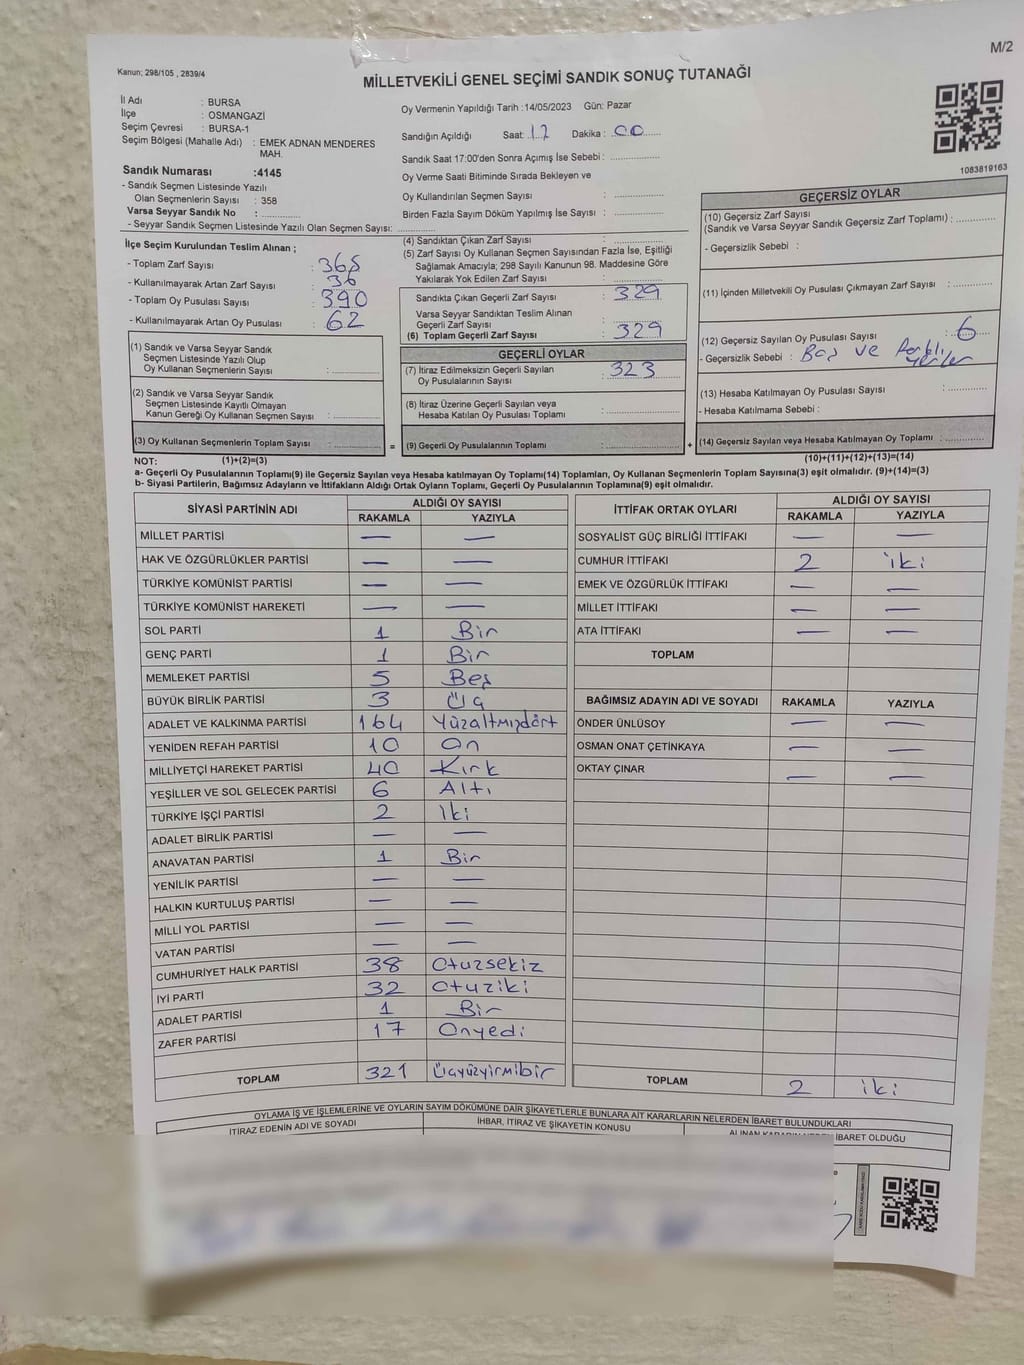 M/2
Kanun; 298/105 , 2839/4
MİLLETVEKİLİ GENEL SEÇİMİ SANDIK SONUÇ TUTANAĞI
İl Adı : BURSA
İlçe : OSMANGAZİ
Seçim Çevresi : BURSA-1
Seçim Bölgesi (Mahalle Adı) : EMEK ADNAN MENDERES
MAH.
Sandık Numarası :4145
- Sandık Seçmen Listesinde Yazılı
Olan Seçmenlerin Sayısı : 358
Varsa Seyyar Sandık No :
- Seyyar Sandık Seçmen Listesinde Yazılı Olan Seçmen Sayısı:
Oy Vermenin Yapıldığı Tarih :14/05/2023 Gün: Pazar
Sandığın Açıldığı Saat: 17 Dakika : 00
Sandık Saat 17:00'den Sonra Açımış İse Sebebi :
Oy Verme Saati Bitiminde Sırada Bekleyen ve
Oy Kullandırılan Seçmen Sayısı :
Birden Fazla Sayım Döküm Yapılmış İse Sayısı :
1083819163
İlçe Seçim Kurulundan Teslim Alınan ;
- Toplam Zarf Sayısı : 365
- Kullanılmayarak Artan Zarf Sayısı : 36
- Toplam Oy Pusulası Sayısı : 390
- Kullanılmayarak Artan Oy Pusulası : 62
(1) Sandık ve Varsa Seyyar Sandık
Seçmen Listesinde Yazılı Olup
Oy Kullanan Seçmenlerin Sayısı :
(2) Sandık ve Varsa Seyyar Sandık
Seçmen Listesinde Kayıtlı Olmayan
Kanun Gereği Oy Kullanan Seçmen Sayısı :
(3) Oy Kullanan Seçmenlerin Toplam Sayısı :
(1)+(2)=(3)
(4) Sandıktan Çıkan Zarf Sayısı :
(5) Zarf Sayısı Oy Kullanan Seçmen Sayısından Fazla İse, Eşitliği
Sağlamak Amacıyla; 298 Sayılı Kanunun 98. Maddesine Göre
Yakılarak Yok Edilen Zarf Sayısı :
Sandıkta Çıkan Geçerli Zarf Sayısı : 329
Varsa Seyyar Sandıktan Teslim Alınan
Geçerli Zarf Sayısı :
(6) Toplam Geçerli Zarf Sayısı : 329
GEÇERLİ OYLAR
(7) İtiraz Edilmeksizin Geçerli Sayılan : 323
Oy Pusulalarının Sayısı
(8) İtiraz Üzerine Geçerli Sayılan veya
Hesaba Katılan Oy Pusulası Toplamı :
= (9) Geçerli Oy Pusulalarının Toplamı : +
GEÇERSİZ OYLAR
(10) Geçersiz Zarf Sayısı
(Sandık ve Varsa Seyyar Sandık Geçersiz Zarf Toplamı) :
- Geçersizlik Sebebi :
(11) İçinden Milletvekili Oy Pusulası Çıkmayan Zarf Sayısı :
(12) Geçersiz Sayılan Oy Pusulası Sayısı : 6
- Geçersizlik Sebebi : Boş ve Farklı
yerler
(13) Hesaba Katılmayan Oy Pusulası Sayısı :
- Hesaba Katılmama Sebebi :
(14) Geçersiz Sayılan veya Hesaba Katılmayan Oy Toplamı :
(10)+(11)+(12)+(13)=(14)
NOT:
a- Geçerli Oy Pusulalarının Toplamı(9) ile Geçersiz Sayılan veya Hesaba katılmayan Oy Toplamı(14) Toplamları, Oy Kullanan Seçmenlerin Toplam Sayısına(3) eşit olmalıdır. (9)+(14)=(3)
b- Siyasi Partilerin, Bağımsız Adayların ve İttifakların Aldığı Ortak Oyların Toplamı, Geçerli Oy Pusulalarının Toplamına(9) eşit olmalıdır.
SİYASİ PARTİNİN ADI ALDIĞI OY SAYISI
RAKAMLA YAZIYLA
MİLLET PARTİSİ — —
HAK VE ÖZGÜRLÜKLER PARTİSİ — —
TÜRKİYE KOMÜNİST PARTİSİ — —
TÜRKİYE KOMÜNİST HAREKETİ — —
SOL PARTİ 1 Bir
GENÇ PARTİ 1 Bir
MEMLEKET PARTİSİ 5 Beş
BÜYÜK BİRLİK PARTİSİ 3 Üç
ADALET VE KALKINMA PARTİSİ 164 Yüzaltmışdört
YENİDEN REFAH PARTİSİ 10 On
MİLLİYETÇİ HAREKET PARTİSİ 40 Kırk
YEŞİLLER VE SOL GELECEK PARTİSİ 6 Altı
TÜRKİYE İŞÇİ PARTİSİ 2 İki
ADALET BİRLİK PARTİSİ — —
ANAVATAN PARTİSİ 1 Bir
YENİLİK PARTİSİ — —
HALKIN KURTULUŞ PARTİSİ — —
MİLLİ YOL PARTİSİ — —
VATAN PARTİSİ — —
CUMHURİYET HALK PARTİSİ 38 Otuzsekiz
İYİ PARTİ 32 Otuziki
ADALET PARTİSİ 1 Bir
ZAFER PARTİSİ 17 Onyedi
TOPLAM 321 Üçyüzyirmibir
İTTİFAK ORTAK OYLARI ALDIĞI OY SAYISI
RAKAMLA YAZIYLA
SOSYALİST GÜÇ BİRLİĞİ İTTİFAKI — —
CUMHUR İTTİFAKI 2 iki
EMEK VE ÖZGÜRLÜK İTTİFAKI — —
MİLLET İTTİFAKI — —
ATA İTTİFAKI — —
TOPLAM
BAĞIMSIZ ADAYIN ADI VE SOYADI RAKAMLA YAZIYLA
ÖNDER ÜNLÜSOY — —
OSMAN ONAT ÇETİNKAYA — —
OKTAY ÇINAR — —
TOPLAM 2 iki
OYLAMA İŞ VE İŞLEMLERİNE VE OYLARIN SAYIM DÖKÜMÜNE DAİR ŞİKAYETLERLE BUNLARA AİT KARARLARIN NELERDEN İBARET BULUNDUKLARI
İTİRAZ EDENİN ADI VE SOYADI İHBAR, İTİRAZ VE ŞİKAYETİN KONUSU ALINAN KARARIN NEDEN İBARET OLDUĞU